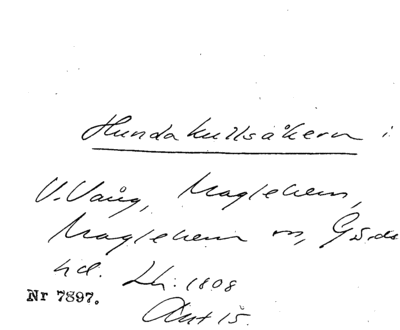 Hundakullsåkern i
V. Vång, Maglehem,
Maglehem sn, Gärds
hd. Lh: 1808
Akt 15.
Nr 7897.